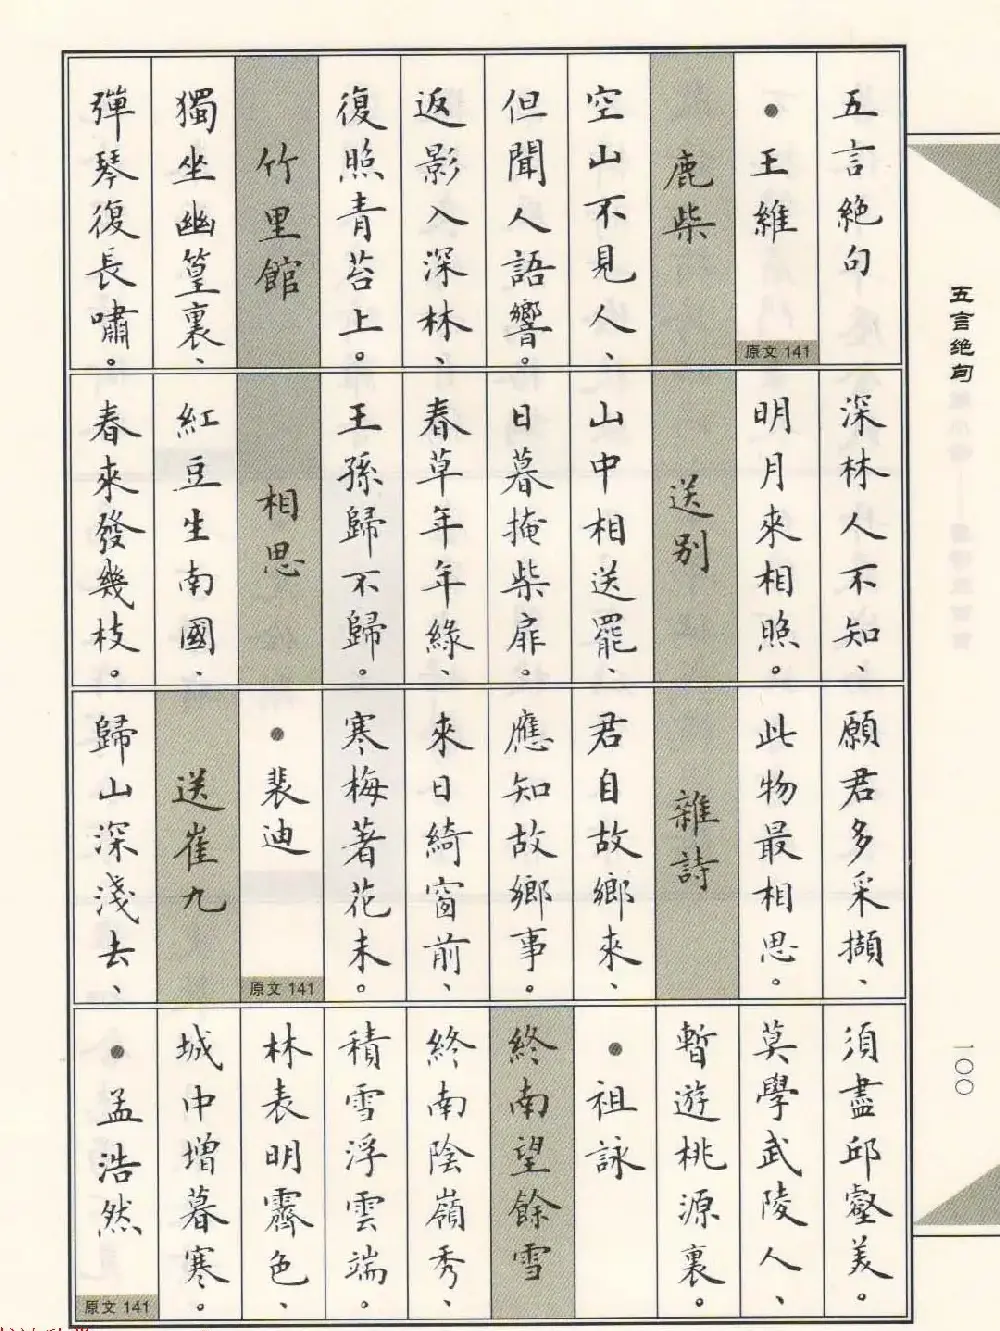 五言絕句
• 王維
原文 141
鹿柴
空山不見人、
但聞人語響。
返影入深林、
復照青苔上。
竹里館
獨坐幽篁裏、
彈琴復長嘯。
深林人不知、
明月來相照。
送別
山中相送罷、
日暮掩柴扉。
春草年年綠、
王孫歸不歸。
相思
紅豆生南國、
春來發幾枝。
願君多采擷、
此物最相思。
雜詩
君自故鄉來、
應知故鄉事。
來日綺窗前、
寒梅著花未。
• 裴迪
原文 141
送崔九
歸山深淺去、
須盡邱壑美。
莫學武陵人、
暫遊桃源裏。
• 祖詠
終南望餘雪
終南陰嶺秀、
積雪浮雲端。
林表明霽色、
城中增暮寒。
• 孟浩然
原文 141
五言绝句
一〇〇